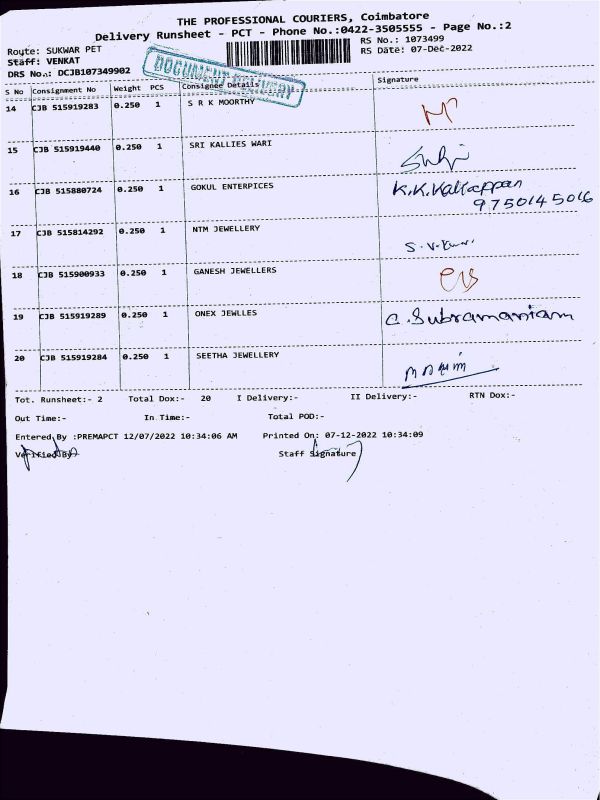 THE PROFESSIONAL COURIERS, Coimbatore
Delivery Runsheet - PCT - Phone No.:0422-3505555 - Page No.:2
Route: SUKWAR PET
RS No.: 1073499
Staff: VENKAT
RS Date: 07-Dec-2022
DRS No.: DCJB107349902
DOCUMENT DELIVERY
S No Consignment No Weight PCS Consignee Details Signature
14 CJB 515919283 0.250 1 S R K MOORTHY
15 CJB 515919440 0.250 1 SRI KALLIES WARI
16 CJB 515880724 0.250 1 GOKUL ENTERPICES K.K.Kaliappan
9750145016
17 CJB 515814292 0.250 1 NTM JEWELLERY
18 CJB 515900933 0.250 1 GANESH JEWELLERS
19 CJB 515919289 0.250 1 ONEX JEWLLES C.Subramaniam
20 CJB 515919284 0.250 1 SEETHA JEWELLERY
Tot. Runsheet:- 2 Total Dox:- 20 I Delivery:- II Delivery:- RTN Dox:-
Out Time:- In Time:- Total POD:-
Entered By :PREMAPCT 12/07/2022 10:34:06 AM Printed On: 07-12-2022 10:34:09
Verified By Staff Signature